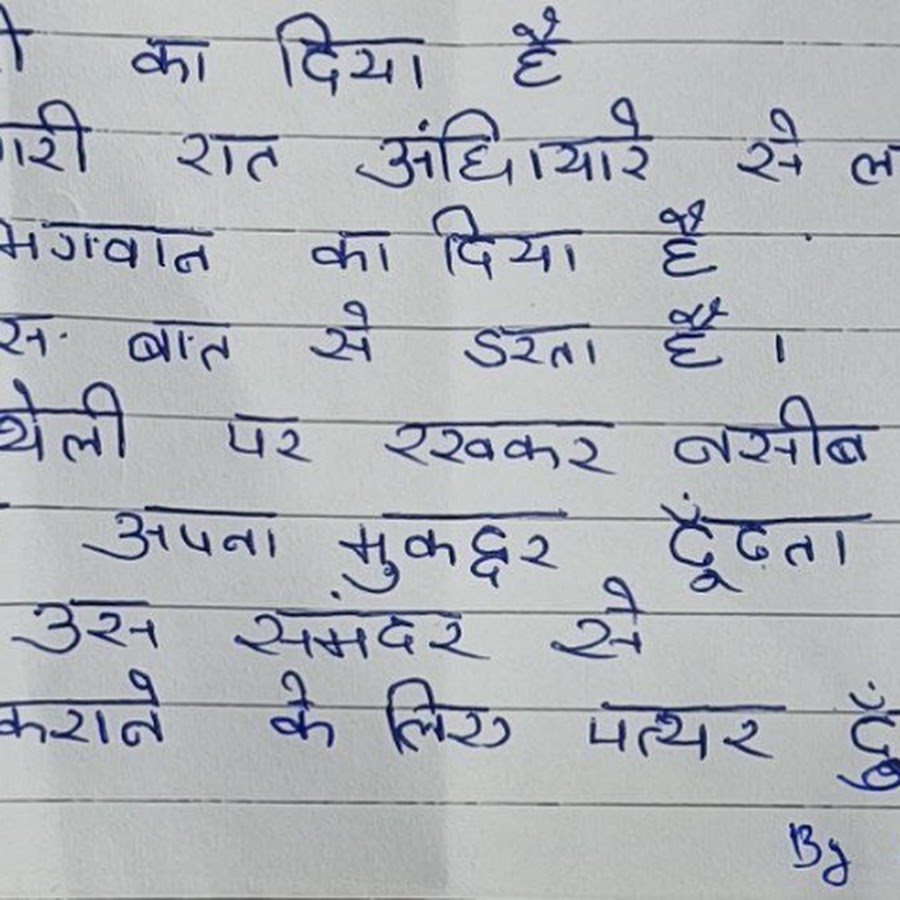 का दिया है
री रात अंधियारे से ल
भगवान का दिया है
स बात से डरता है ।
थेली पर रखकर नसीब
अपना मुकद्दर ढूंढता
उस संमदर से
कराने के लिए पत्थर ढूं
By